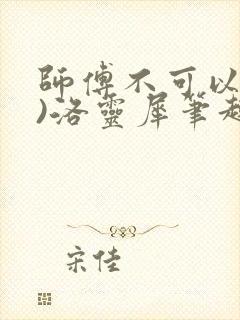 師傅不可以
)洛靈犀筆趣
宋佳